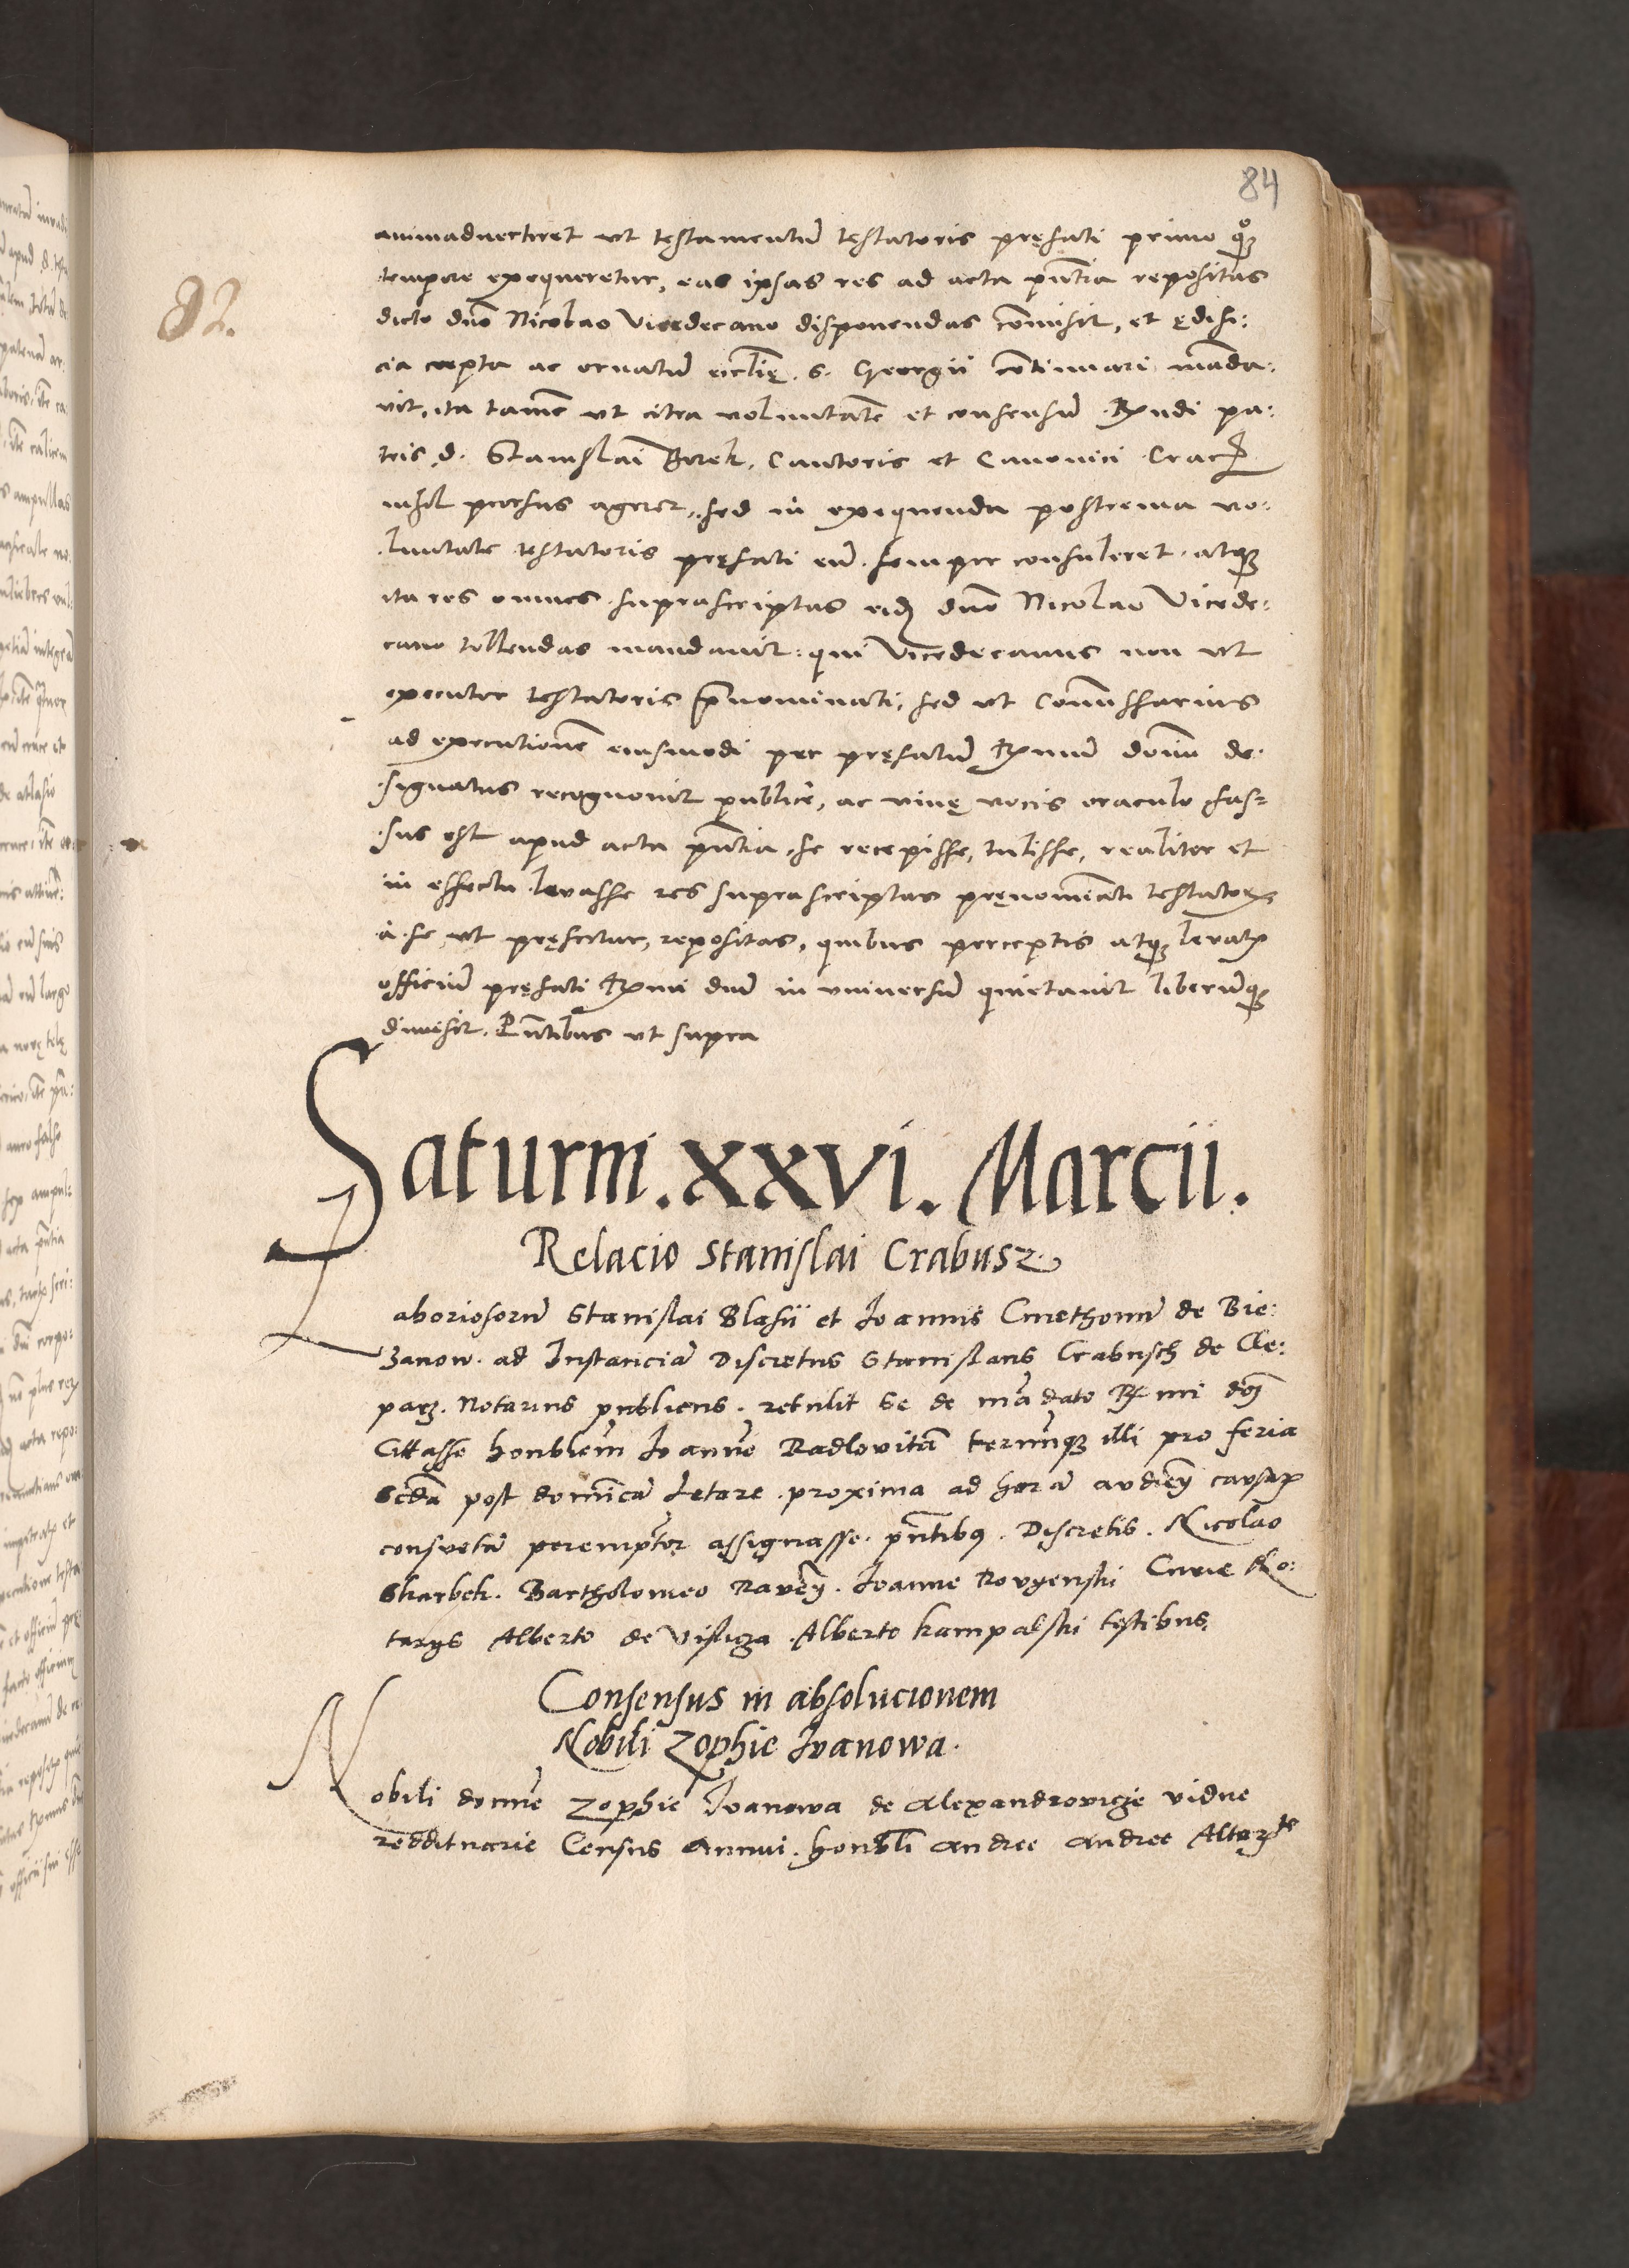 84
82.
animadverteret ut testamentũ tęstatoris pręfati primo qͦq3
tempore exequeretur, eas ipsas res ad acta pñtia repositas
dicto dño Nicolao Vicedecano disponendas cõmisit, et ędifi:
cia cepta ac ornatũ eccl̃ię. S. Georgii cõtinuari mãda:
vit, ita tamẽ ut citra voluntatẽ et consensũ Rꝫndi pa:
tris d. Stanislai Borek, Cantoris et Canonici Crac̃
nihil prorsus ageret, sed in exequenda postrema vo:
luntate testatoris pręfati eũ semper consuleret. atq3
ita res omnes suprascriptas eid̃ dño Nicolao Vicede:
cano tollendas mandavit: qui Vicedecanus non ut
executor testatoris p̃nominati, sed ut Com̃issarius
ad executionẽ eiusmodi per pręfatũ Rꝫmũ domĩnũ de:
signatus recognovit publicè, ac vivę vocis oraculo fas=
sus est apud acta pñtia, se recepisse, tulisse, realiter et
in effectu levasse res suprascriptas pręnomĩati testatorꝭ
à se, ut pręfertur, repositas, quibus perceptis atq3 levatꝭ
officiũ pręfati Rꝫmi dñi in universũ quietavit liberũq3
dimisit. Pñtibus ut supra
Saturni. XXVI. Marcii.
Relacio Stanislai Crabusz
Laboriosorũ Stanislai Blasii et Joannis Cmethonũ de Bie:
zanow. ad Instanciã Discretus Stanislaus Crabusch de Cle:
parz. Notarius publicus. retulit se de mãdato Rꝫmi dñj
Citasse honblem̃ Joannẽ Radlovitã termĩnq3 illi pro feria
Scdã post domĩcã Letare proxima ad horã audieñ causarꝝ
consvetã perempt̃or assignasse. pñtibꝯ. Discretis. Nicolao
Skarbek. Bartholomeo Raveñ. Joanne Rovyenski Curie No:
tarijs Alberto de Visliga Alberto Kampalski testibus,
Consensus in absolucionem
Nobili Zophie Ivanowa.
Nobili domne Zophie Ivanowa de Alexandrovicze vidue
reddituarie Census Annui. honbli Andree Andree Altarˢᵗᵉ